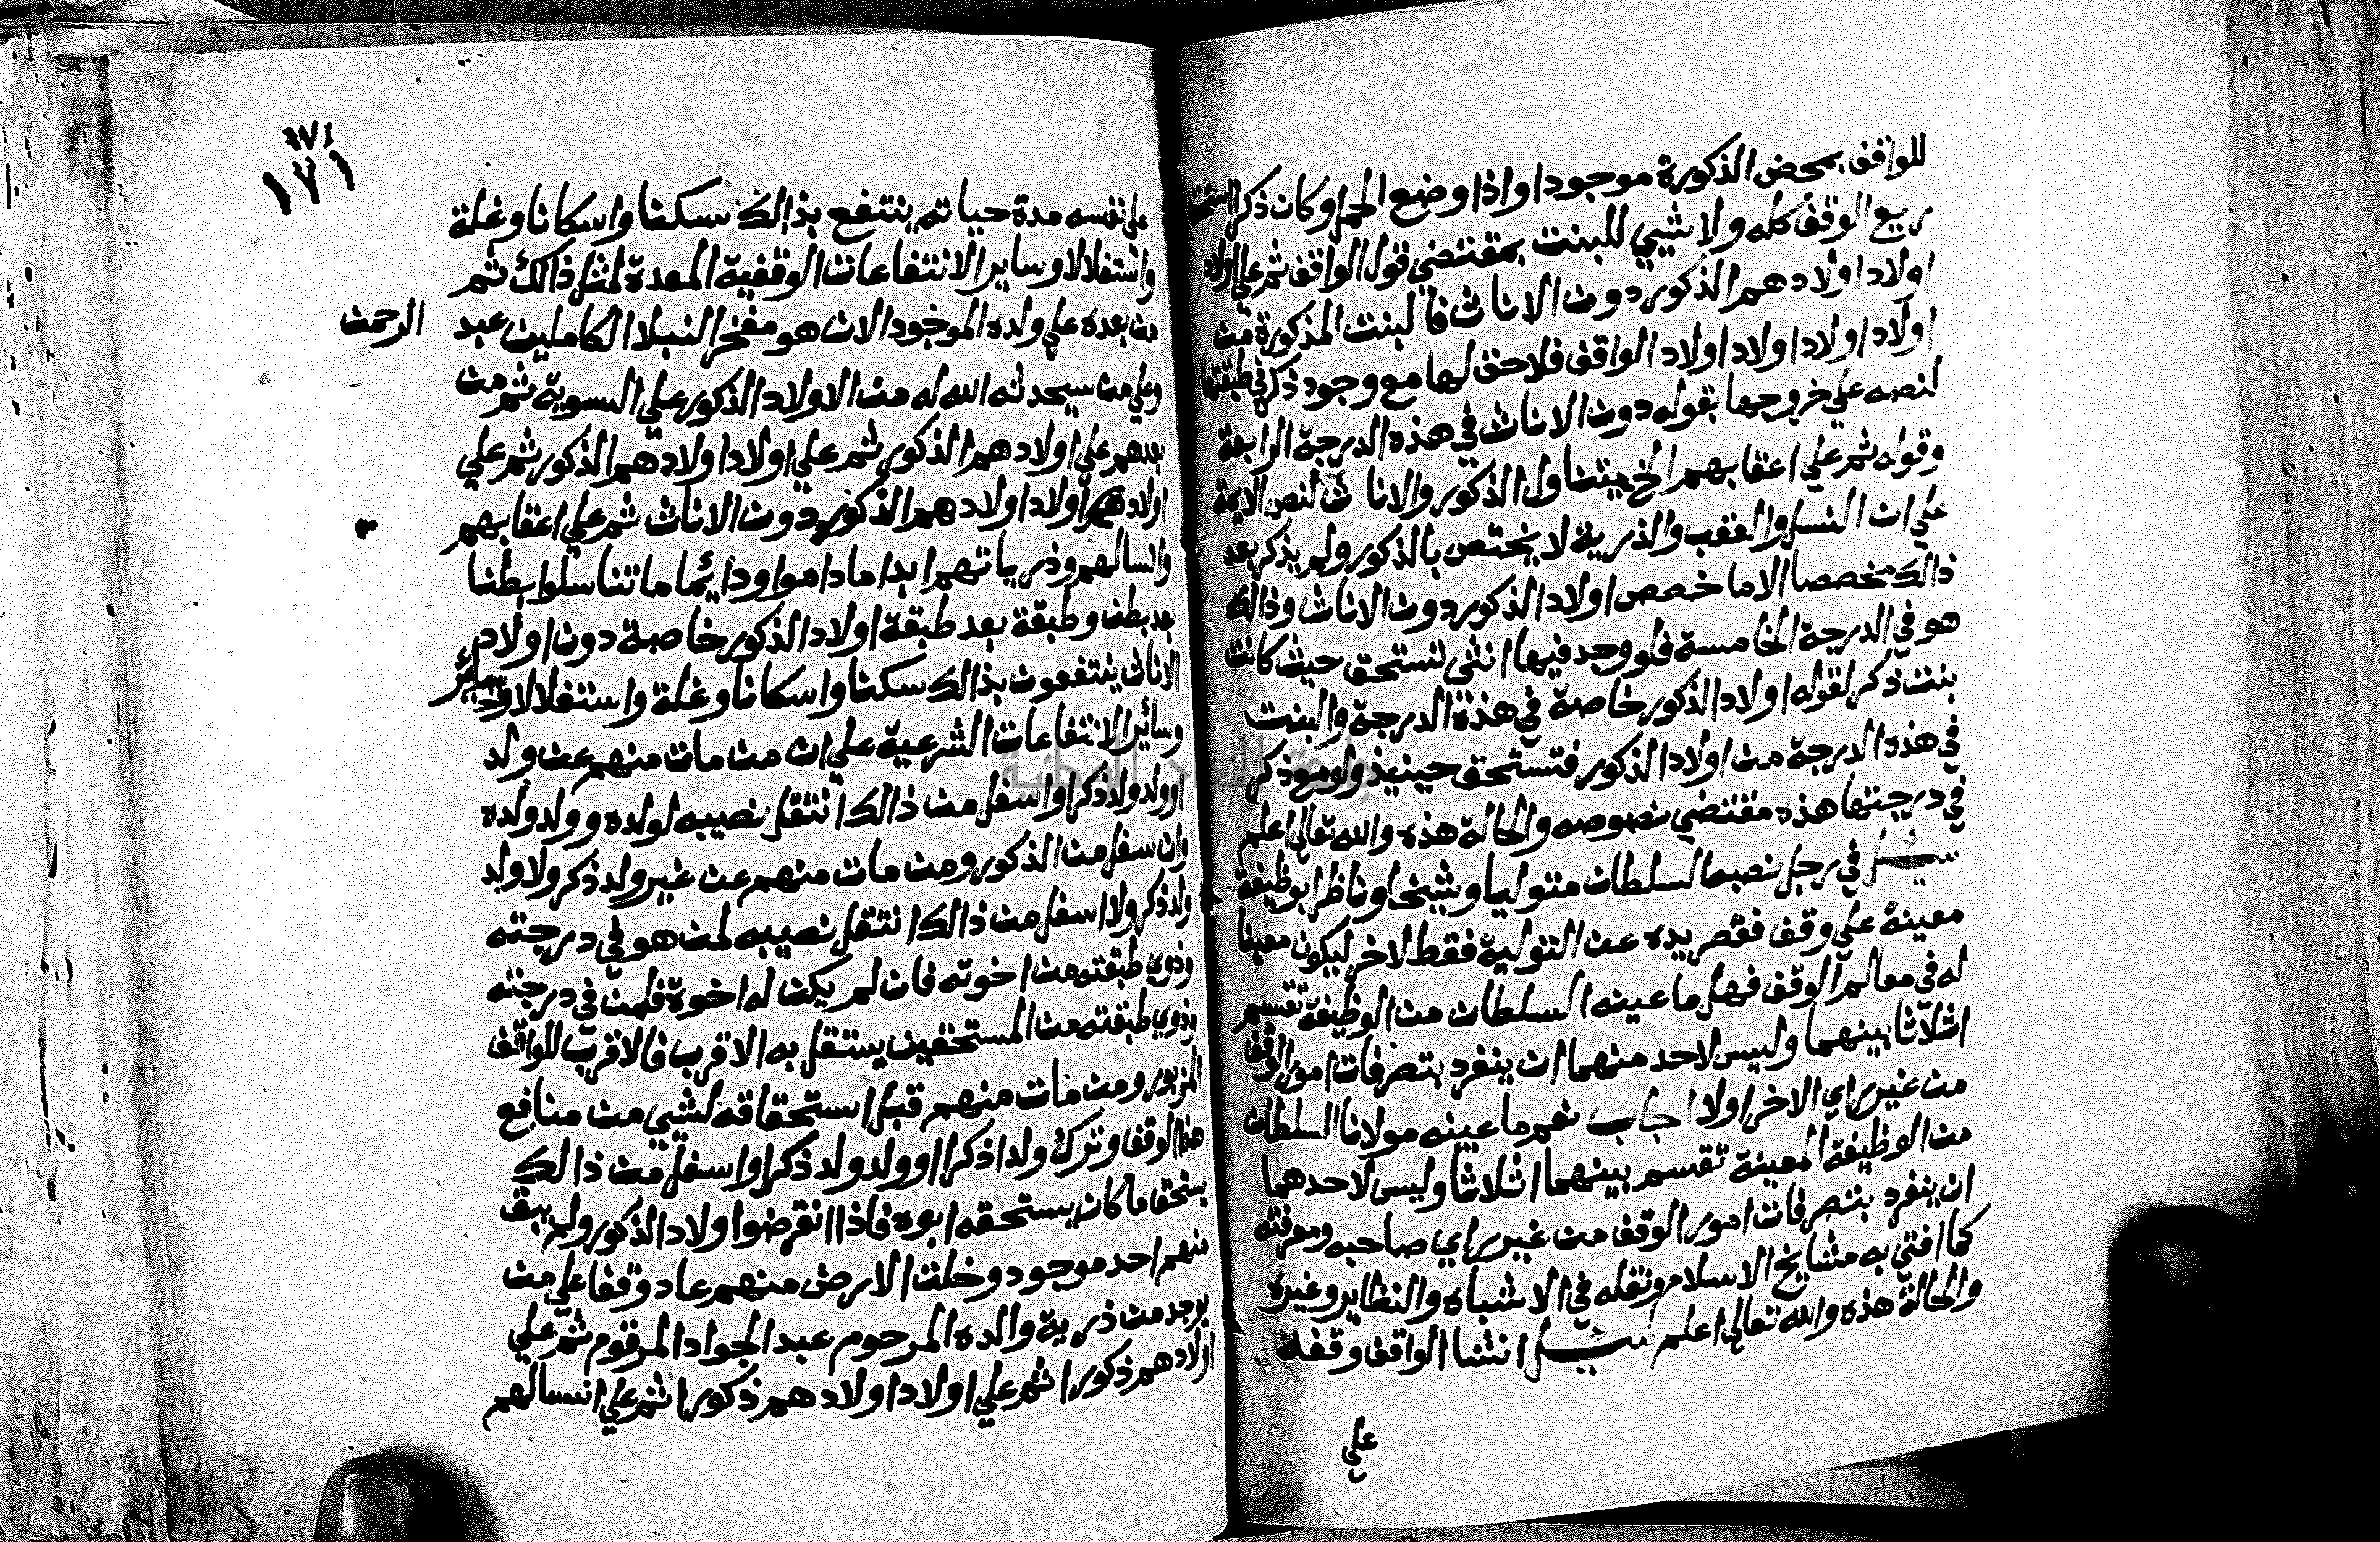 للواقف بمحض الذكورة موجودا واذا وضع الحمل وكان ذكرا استحق
ريع الوقف كله ولا شيي للبنت بمقتضي قول الواقف ثم علي اولاد
اولاد اولادهم الذكور دون الاناث فالبنت المذكورة من
اولاد اولاد اولاد اولاد الواقف فلاحق لها مع وجود ذكر في طبقتها
لنصه علي خروجها بقوله دون الاناث في هذه الدرجة الرابعة
وقوله ثم علي اعقابهم الخ يتناول الذكور والاناث لنص الايمة
علي ان النسل والعقب والذرية لا يختص بالذكور ولم يذكر بعد
ذالك مخصصا الا ما خصص اولاد الذكور دون الاناث وذالك
هو في الدرجة الخامسة فلو وجد فيها انثي تستحق حيث كانت
بنت ذكر لقوله اولاد الذكور خاصة في هذة الدرجة والبنت
في هذه الدرجة من اولاد الذكور فتستحق حينيذ ولو مع ذكر
في درجتها هذه مقتضي نصوصه والحالة هذه والله تعالي اعلم
سئل في رجل نصبه السلطان متوليا وشيخا وناظرا بوظيفة
معينة علي وقف فقصر يده عن التولية فقط لاخر ليكون معينا
له في معالم الوقف فهل ما عينه السلطان من الوظيفة تقسم
اثلاثا بينهما وليس لاحد منهما ان ينفرد بتصرفات امور الوقف
من غير راي الاخر اولا اجاب نعم ما عينه مولانا السلطان
من الوظيفة المعينة تقسم بينهما اثلاثا وليس لاحدهما
ان ينفرد بتصرفات امور الوقف من غير راي صاحبه ومعرفته
كما افتي به مشايخ الاسلام ونقله في الاشباه والنظاير وغيره
والحالة هذه والله تعالي اعلم سئل انشا الواقف وقفه
علي
١٧١
١٧١
علي نفسه مدة حياته ينتفع بذالك سكنا واسكانا وغلة
واستغلالا وساير الانتفاعات الوقفية المعدة لمثل ذالك ثم
من بعده علي ولده الموجود الان هو مفخر النبلا الكاملين عبد الرحمن
وعلي من سيحدثه الله له من الاولاد الذكور علي السوية ثم من
بعدهم علي اولادهم الذكور ثم علي اولاد اولادهم الذكور ثم علي
اولادهم اولاد اولادهم الذكور دون الاناث ثم علي اعقابهم
وانسالهم وذرياتهم ابدا ما داموا ودايما ما تناسلوا بطنا
بعد بطن وطبقة بعد طبقة اولاد الذكور خاصة دون اولاد
الاناث ينتفعون بذالك سكنا واسكانا وغلة واستغلالا وساير
وساير الانتفاعات الشرعية علي ان من مات منهم عن ولد
او ولد ولد ذكر او اسفل من ذالك انتقل نصيبه لولده وولد ولده
وان سفل من الذكور ومن مات منهم عن غير ولد ذكر ولا ولد
ولد ذكر ولا اسفل من ذالك انتقل نصيبه لمن هو في درجته
وذوي طبقته من اخوته فان لم يكن له اخوة فلمن في درجته
وذوي طبقته من المستحقين يستقل به الاقرب فالاقرب للواقف
المزبور ومن مات منهم قبل استحقاقه لشيي من منافع
هذا الوقف وترك ولدا ذكرا او ولد ولد ذكر او اسفل من ذالك
يستحق ما كان يستحقه ابوه فاذا انقرضوا اولاد الذكور ولم يبق
منهم احد موجود وخلت الارض منهم عاد وقفا علي من
يوجد من ذرية والده المرحوم عبد الجواد المرقوم ثم علي
اولادهم ذكورا ثم علي اولاد اولادهم ذكورا ثم علي انسالهم